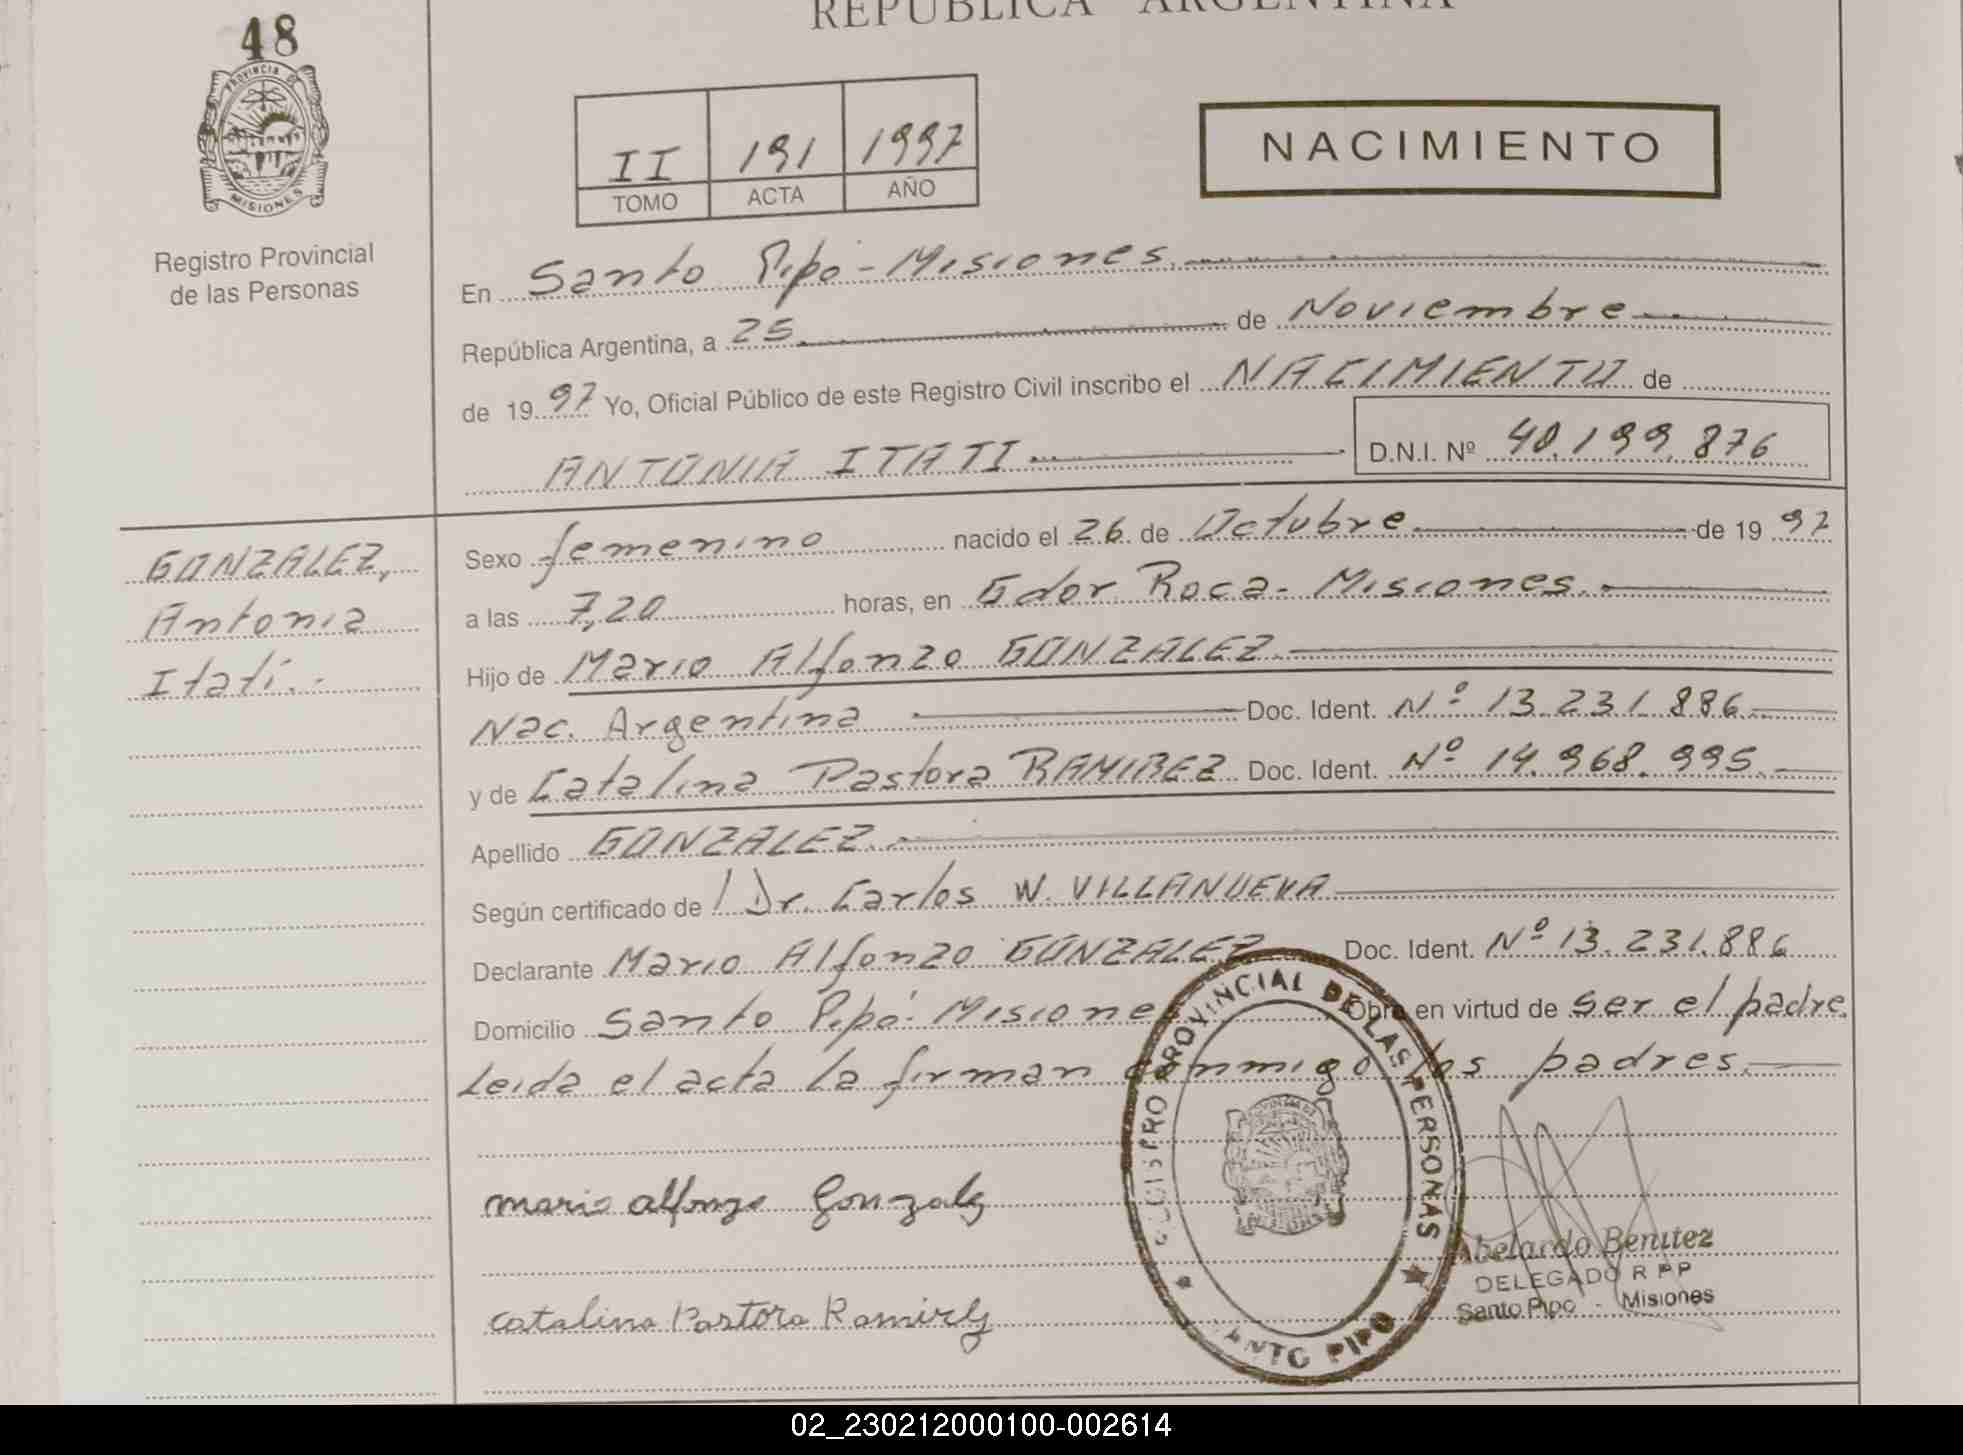 REPUBLICA ARGENTINA
48
PROVINCIA DE
MISIONES
Registro Provincial
de las Personas
II 191 1997
TOMO ACTA AÑO
NACIMIENTO
En Santo Pipó - Misiones.
República Argentina, a 25 de Noviembre
de 1997 Yo, Oficial Público de este Registro Civil inscribo el NACIMIENTO de
ANTONIA ITATI D.N.I. Nº 40.199.876
GONZALEZ,
Antonia
Itatí.-
Sexo femenino nacido el 26 de Octubre de 1997
a las 7,20 horas, en Gdor Roca - Misiones.
Hijo de Mario Alfonzo GONZALEZ.
Nac. Argentina Doc. Ident. Nº 13.231.886
y de Catalina Pastora RAMIREZ Doc. Ident. Nº 14.968.995.
Apellido GONZALEZ.
Según certificado de Dr. Carlos W. VILLANUEVA
Declarante Mario Alfonzo GONZALEZ Doc. Ident. Nº 13.231.886
Domicilio Santo Pipó - Misiones Obra en virtud de ser el padre.
Leida el acta la firman conmigo los padres.
mario alfonzo Gonzalez
Catalina Pastora Ramirez
REGISTRO PROVINCIAL DE LAS PERSONAS
SANTO PIPO
Abelardo Benitez
DELEGADO R P P
Santo Pipo - Misiones
02_230212000100-002614